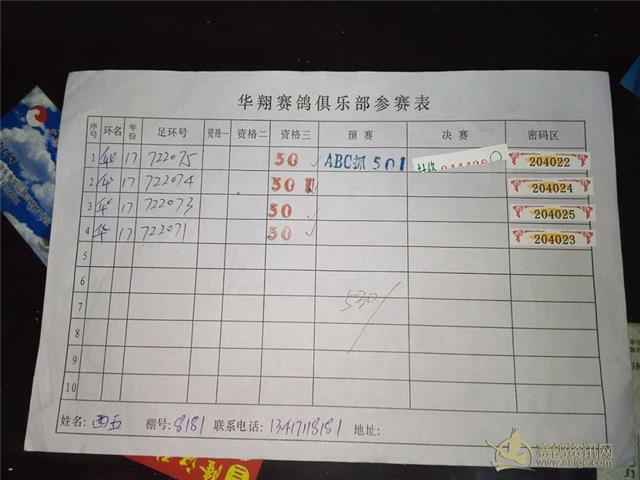 华翔赛鸽俱乐部参赛表
序号 环名 年份 足环号 资格一 资格二 资格三 预赛 决赛 密码区
1 华 17 722075 50 ABC抓 501 204022
2 华 17 722074 50 204024
3 华 17 722073 50 204025
4 华 17 722071 50 204023
5
6
7 530/
8
9
10
姓名: 棚号: 8181 联系电话: 13417118181 地址:
赛鸽资讯网
www.saige.com